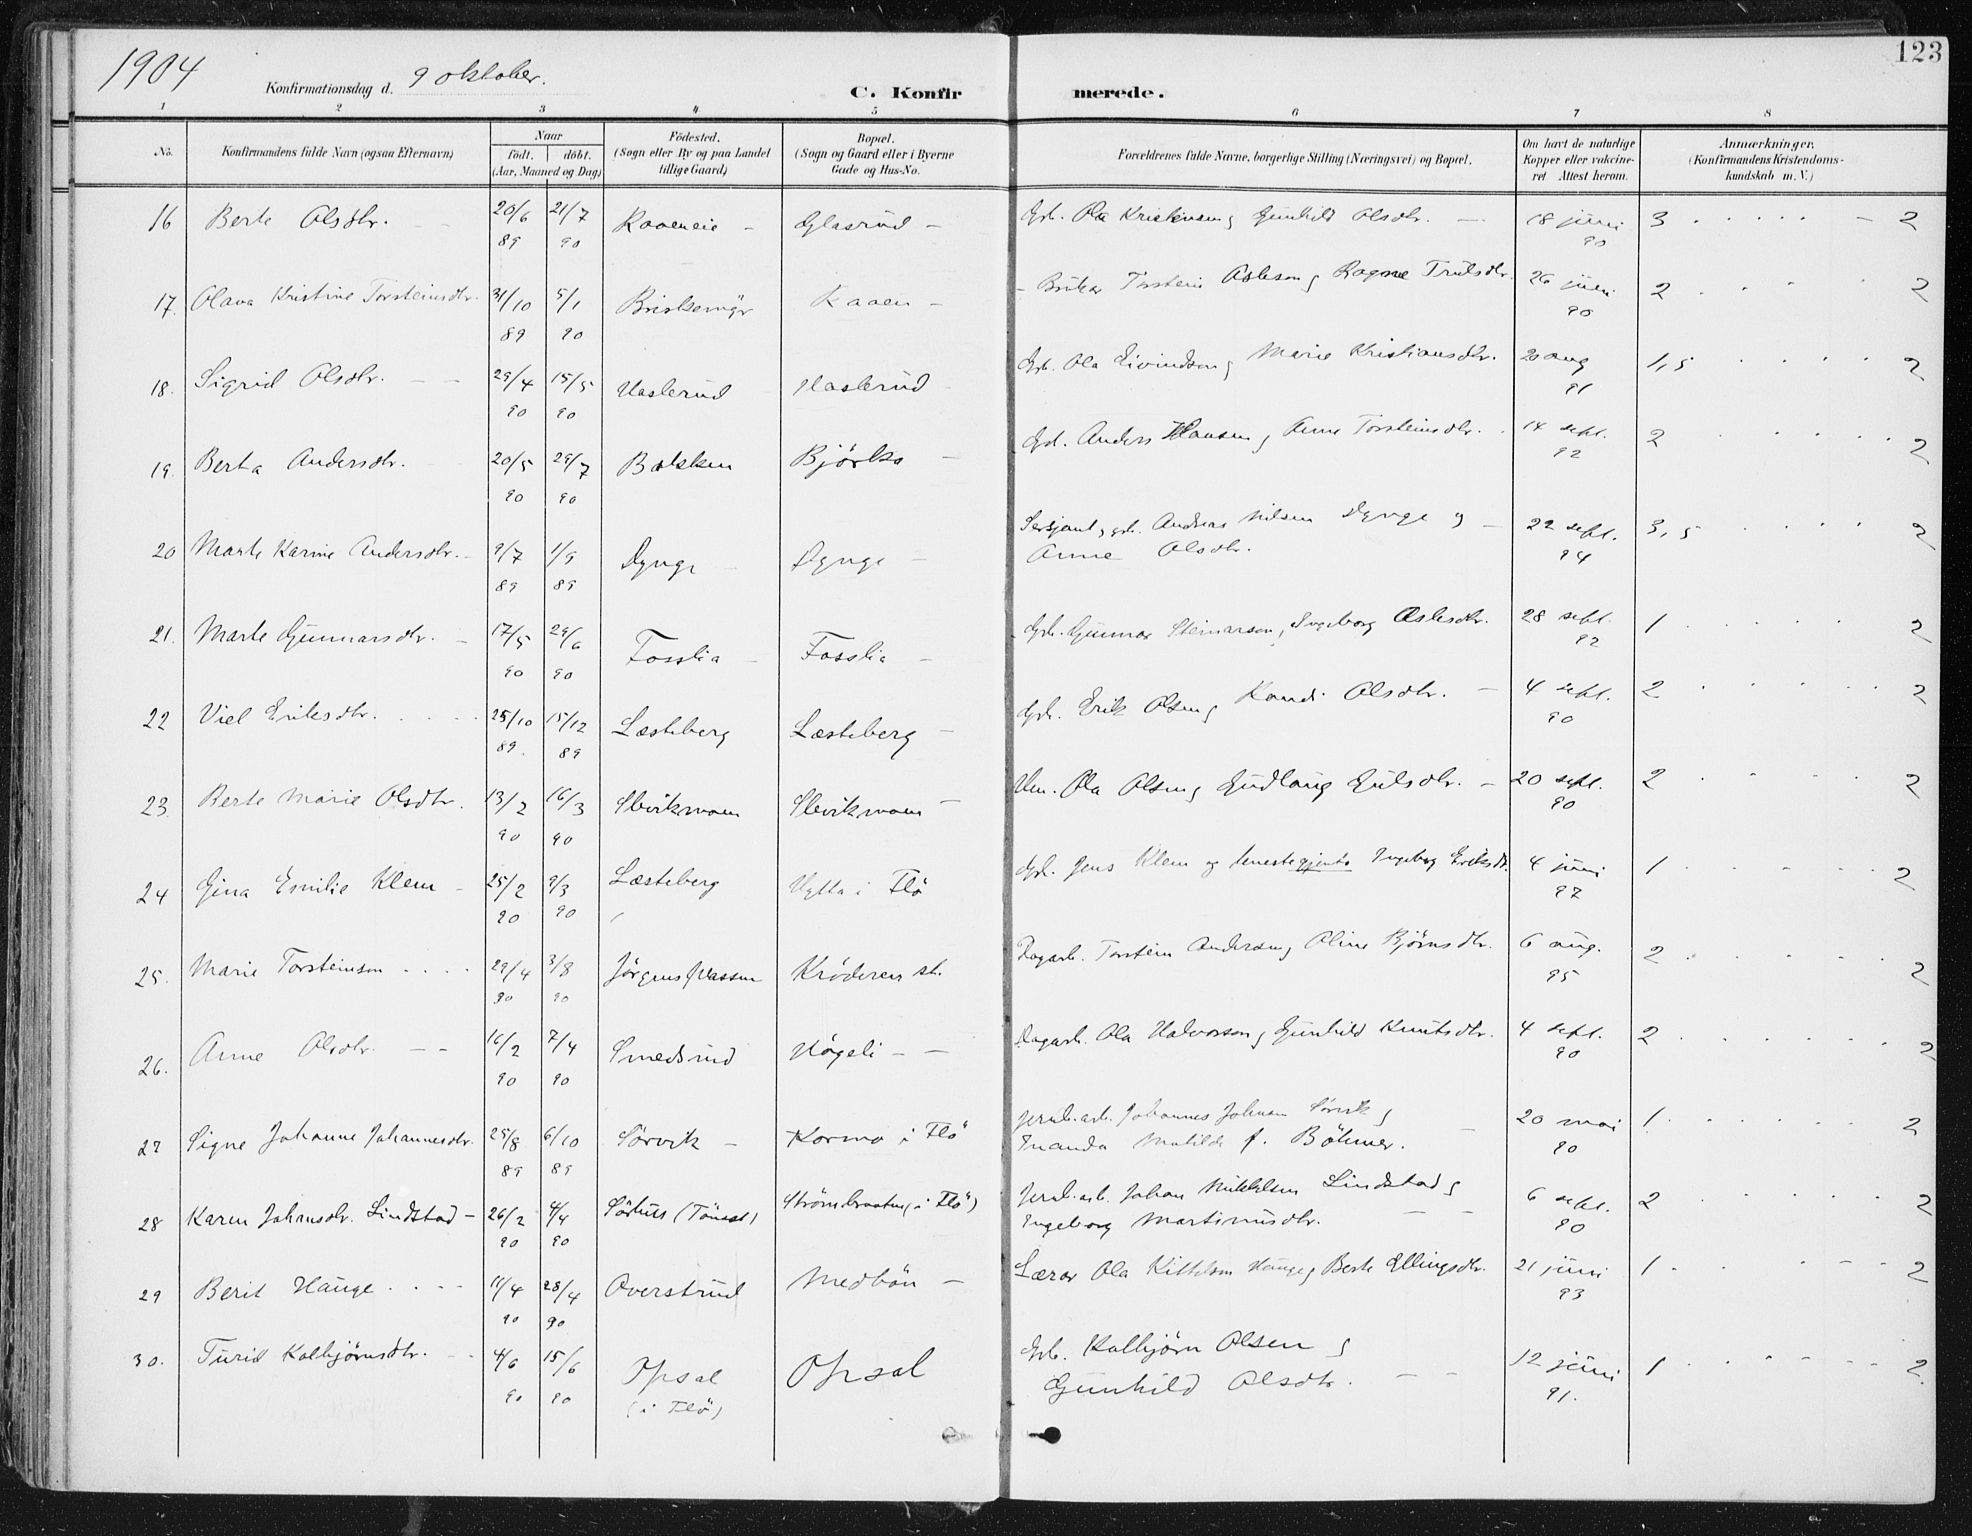 123
1904
Konfirmationsdag d. 9 oktober.
C. Konfirmerede.
1 2 3 4 5 6 7 8
No.
Konfirmandens fulde Navn (ogsaa Efternavn)
Naar
født. døbt.
(Aar, Maaned og Dag)
Födested.
(Sogn eller By og paa Landet
tillige Gaard)
Bopæl.
(Sogn og Gaard eller i Byerne
Gade og Hus-No.
Forældrenes fulde Navne, borgerlige Stilling (Næringsvei) og Bopæl.
Om havt de naturlige
Kopper eller vakcine-
ret. Attest herom.
Anmærkninger.
(Konfirmandens Kristendoms-
kundskab m. V.)
16 Berte Olsdtr. 20/6 89 21/7 90 Kaaeneie Glasrud Gbr. Ola Kristensen og Gunhild Olsdtr. 18 juni 90 3 2
17. Olava Kristine Torsteinsdtr. 31/10 89 5/1 90 Briskemyr Kaaen Torstein Asleson og Ragne Trulsdtr. 26 juni 90 2 2
18. Sigrid Olsdtr. 29/4 90 15/5 90 Haslerud Haslerud Gbr. Ola Eivindson og Marie Kristiansdtr. 20 aug 91 1,5 2
19. Berta Andersdtr. 20/5 90 29/7 90 Bakken Björko Gbr. Anders Hansen og Anne Torsteinsdtr. 14 sept. 92 2 2
20 Marte Karine Andersdtr. 9/7 89 1/9 89 Dynge Dynge Sersjant, gbr. Andreas Nilsen Dynge og
Anne Olsdtr. 22 sept. 94 3,5 2
21. Marte Gunnarsdtr. 17/5 90 29/6 90 Fosslia Fosslia Gbr. Gunnar Steinarson, Ingeborg Aslesdtr. 28 sept. 92 1 2
22 Viel Eriksdtr. 25/10 89. 15/12 89 Læsteberg Læsteberg Gbr. Erik Olsen og Randi Olsdtr. 4 sept. 90 2 2
23. Berte Marie Olsdtr. 13/2 90 16/3 90 Slevikmoen Slevikmoen Hm. Ola Olsen og Gudlaug Gulsdtr. 20 sept. 90 2 2
24 Gina Emilie Klem 25/2 90 9/3 90 Læsteberg Hytta i Flö Gbr. Jens Klem og tenestegjenta Ingebog Eriksdt. 4 juni 97 1 2
25. Marie Torsteinson 29/4 90 3/8 90 Jörgensplassen Kröderen st. Dagarb. Torstein Anderson og Oline Bjørnsdtr. 6 aug. 95 2 2
26. Anne Olsdtr. 16/2 90 7/4 90 Smedsrud Högeli Dagarb. Ola Halvorson og Gunhild Knutsdtr. 4 sept. 90 2 2
27 Signe Johanne Johannesdtr. 25/8 89 6/10 89 Sörvik Kormo i Flö Jernb.arb. Johannes Johnsen Sörvik og
Matilde f. Böhmer. 20 mai 90 1. 2
28 Karen Johansdtr. Lindstad 26/2 90 4/4 90 Sörhus Strömsbraaten (i Flö) Jernb.arb. Johan Mikkelsen Lindstad og
Ingeborg Martinusdtr. 6 sept. 90 2 2
29 Berit Hauge 11/4 90 28/4 90 Overstrud Medbön Lærar Ola Kittelsen Hauge og Berte Ellingsdtr. 21 juni 93 1 2
30. Turid Kolbjørnsdtr. 4/6 90 15/6 90 Opsal
(i Flö) Opsal Gbr. Kolbjørn Olsen og
Gunhild Olsdtr. 12 juni 91. 1 2.